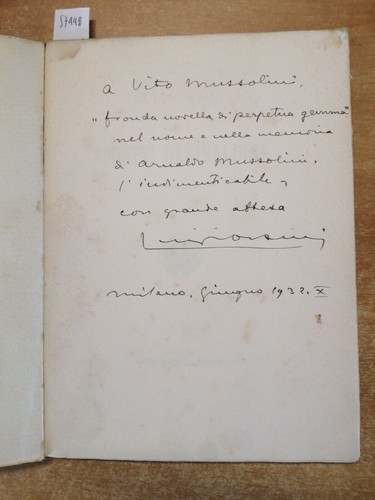 57448
A Vito Mussolini,
"fronda novella di perpetua gemma"
nel nome e nella memoria
di Arnaldo Mussolini,
l'indimenticabile,
con grande attesa
Luigi Orsini
Milano, Giugno 1932. X